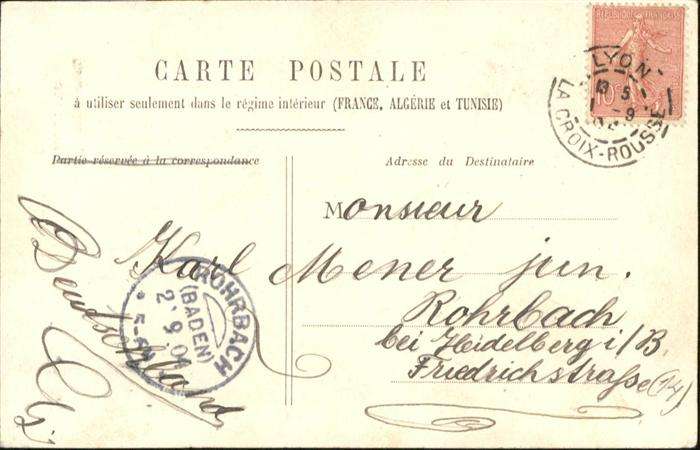 RÉPUBLIQUE FRANÇAISE
10
LYON
5
9
LA CROIX-ROUSSE
CARTE POSTALE
à utiliser seulement dans le régime intérieur (FRANCE, ALGÉRIE et TUNISIE)
Partie réservée à la correspondance
Adresse du Destinataire
Monsieur
Karl Mener jun.
Rohrbach
bei Heidelberg i/B.
Friedrichstraße (14)
Deutschland
ROHRBACH
(BADEN)
2 9 04
5-